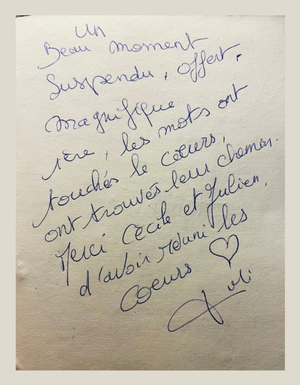 Un
Beau moment
suspendu, offert.
Magnifique
1ère, les mots ont
touchés le cœurs,
ont trouvés leur chemin.
Merci Cécile et Julien,
d'avoir réuni les
coeurs